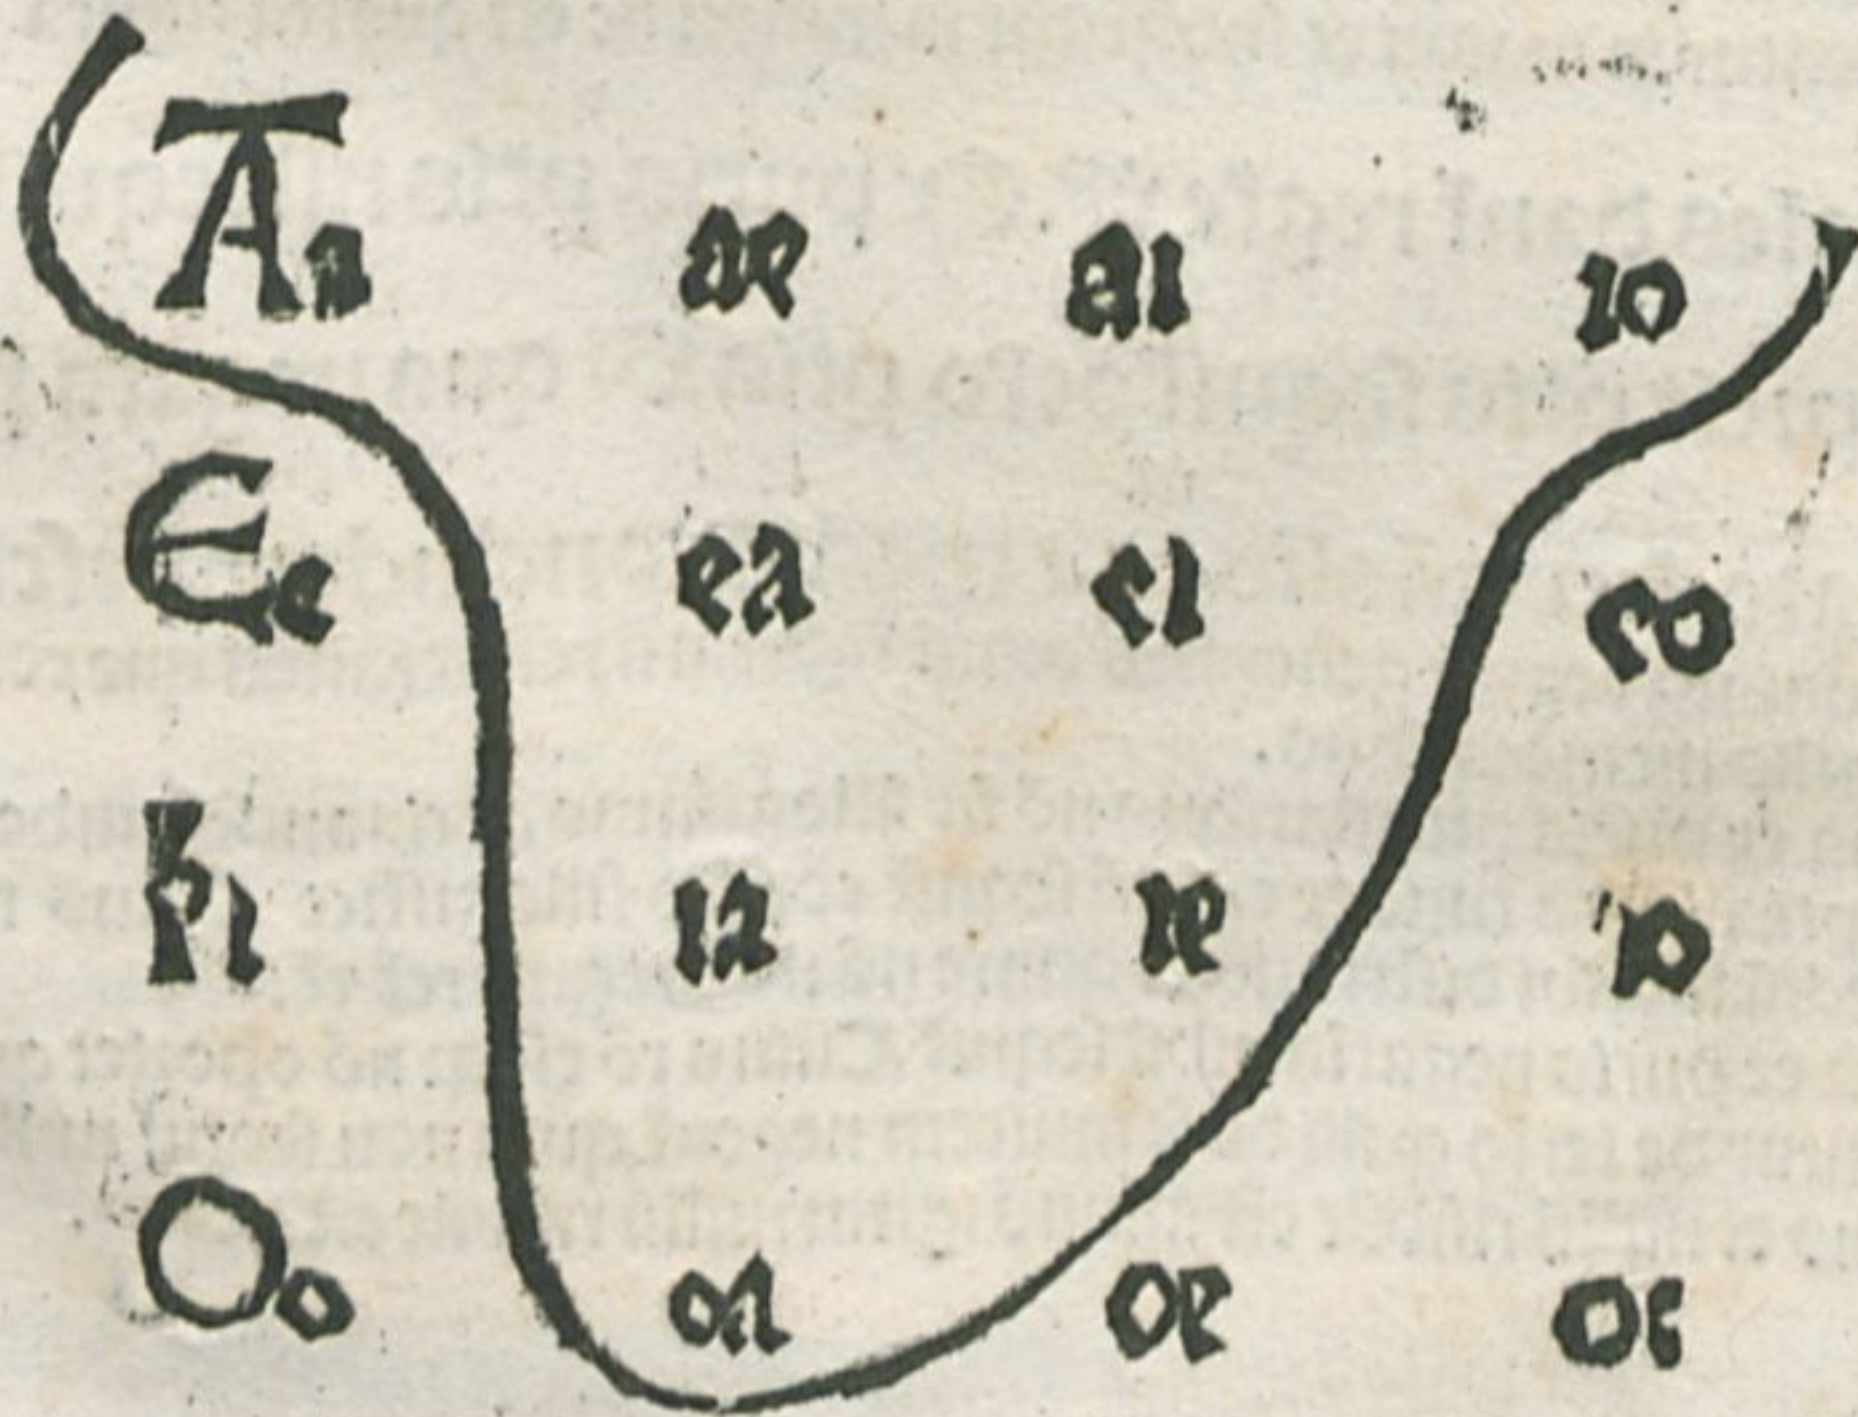 Aa ae ai io
Ee ea ei eo
hi ia ie io
Oo oa oe oi